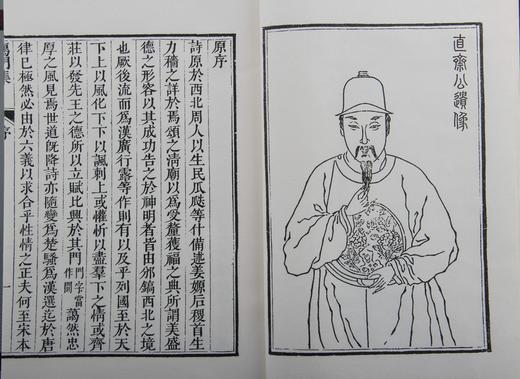 直齋公遺像
原序
詩原於西北周人以生民瓜瓞等什備述姜嫄后稷首生
力穡之詳於焉頌之清廟以為受釐獲福之典所謂美盛
德之形容以其成功告之於神明者皆由邠鎬西北之境
也厥後流而為漢廣行露等作則有以及乎列國至於天
下上以風化下下以諷刺上或懽忻以盡羣下之情或齊
莊以發先王之德所以立賦比興於其門門字當作開藹然忠
厚之風見焉世道旣降詩亦隨變為楚騷為漢選迄於唐
律已極然必由於六義以求合乎性情之正夫何至宋本
門集
序
一